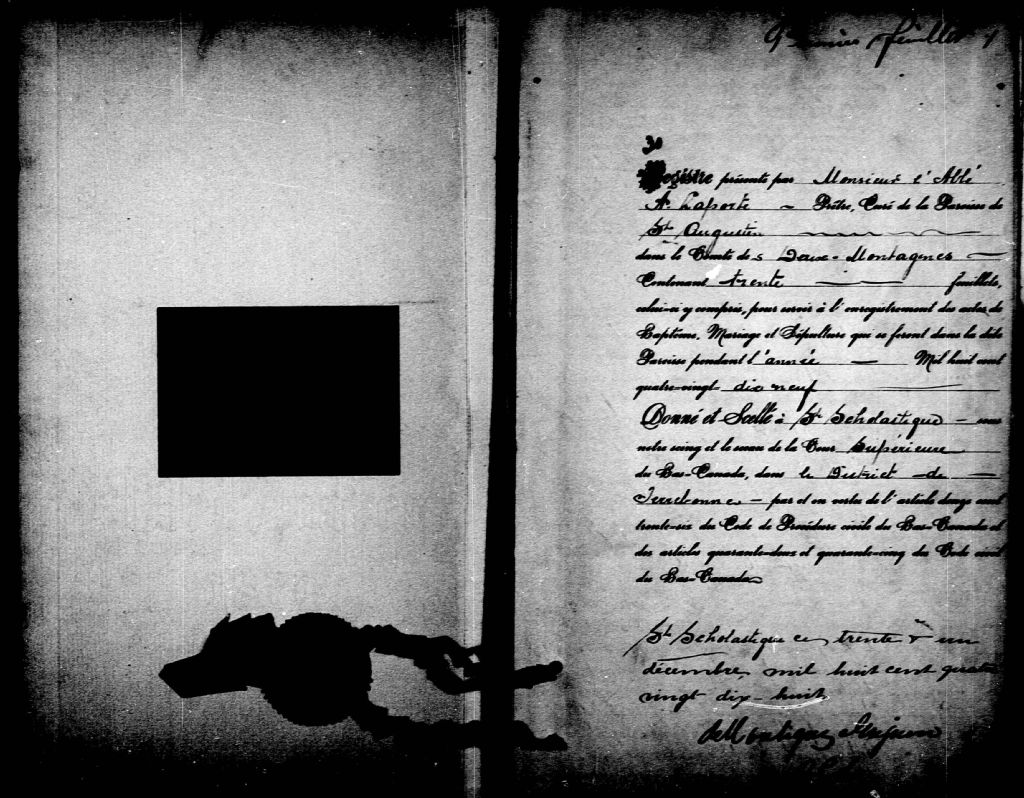 Premier feuillet
30
Registre présenté par Monsieur l'Abbé
A. Laporte - Prêtre, Curé de la Paroisse de
St Augustin
dans le Comté des Deux-Montagnes —
Contenant trente — feuillets,
celui-ci y compris, pour servir à l'enregistrement des actes de
Baptême, Mariage et Sépulture qui se feront dans la dite
Paroisse pendant l'année — Mil huit cent
quatre-vingt- dix neuf
Donné et Scellé à St Scholastique — sous
notre seing et le sceau de la Cour Supérieure
du Bas-Canada, dans le District de —
Terrebonne — par et en vertu de l'article douze cent
trente-six du Code de Procédure civile du Bas-Canada et
des articles quarante-deux et quarante-cinq du Code civil
du Bas-Canada
St Scholastique ce trente & un
décembre, mil huit cent quatre
vingt dix-huit
deMontigny